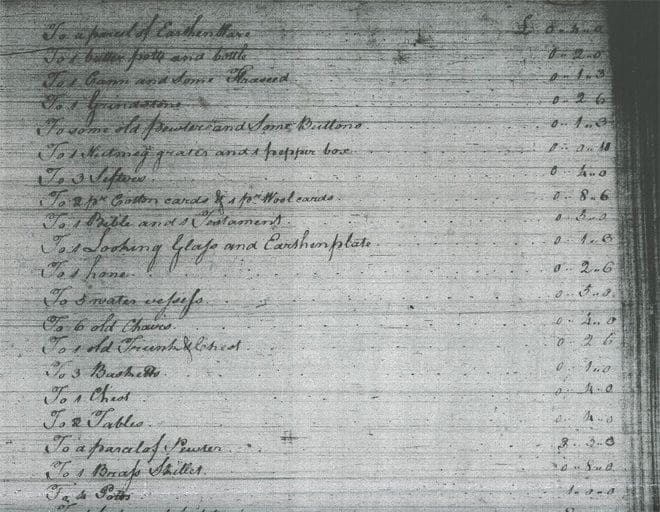 To a parcel of Earthen Ware £ 0 .. 4 .. 0
To 1 butter pott and bottle 0 .. 2 .. 0
To 1 Cann and Some fflaxseed 0 .. 1 .. 3
To 1 Grindstone 0 .. 2 6
To some old Pewter and Some Buttons 0 .. 1 .. 3
To 1 Nutmeg grater and 1 pepper box 0 .. 0 .. 10
To 3 Sefters 0 .. 4 .. 0
To 2 pr Cotton cards & 1 pr Wool cards 0 .. 8 .. 6
To 1 Bible and 1 Testament 0 .. 5 .. 0
To 1 Looking Glass and Earthen plate 0 .. 1 .. 3
To 1 hone 0 .. 2 .. 6
To 5 water vessels 0 .. 5 .. 0
To 6 old Chairs 0 .. 4 .. 0
To 1 old Trunk & Chest 0 .. 2 6
To 3 Basketts 0 .. 1 .. 0
To 1 Chest 0 .. 4 .. 0
To 2 Tables 0 .. 4 .. 0
To a parcel of Pewter 3 .. 3
To 1 Brass Skillet 0 .. 8 .. 0
To 4 Potts 1 .. 0 .. 0